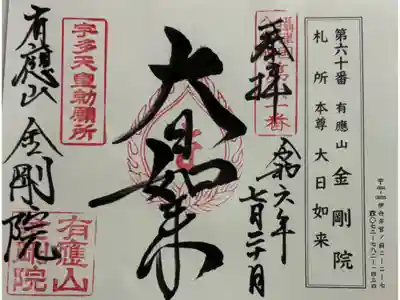 第六十番 有應山 金剛院
札所本尊 大日如来
奉拝
令和六年
七月二十日
大日如来
宇多天皇勅願所
有應山 金剛院
有應山
金剛院